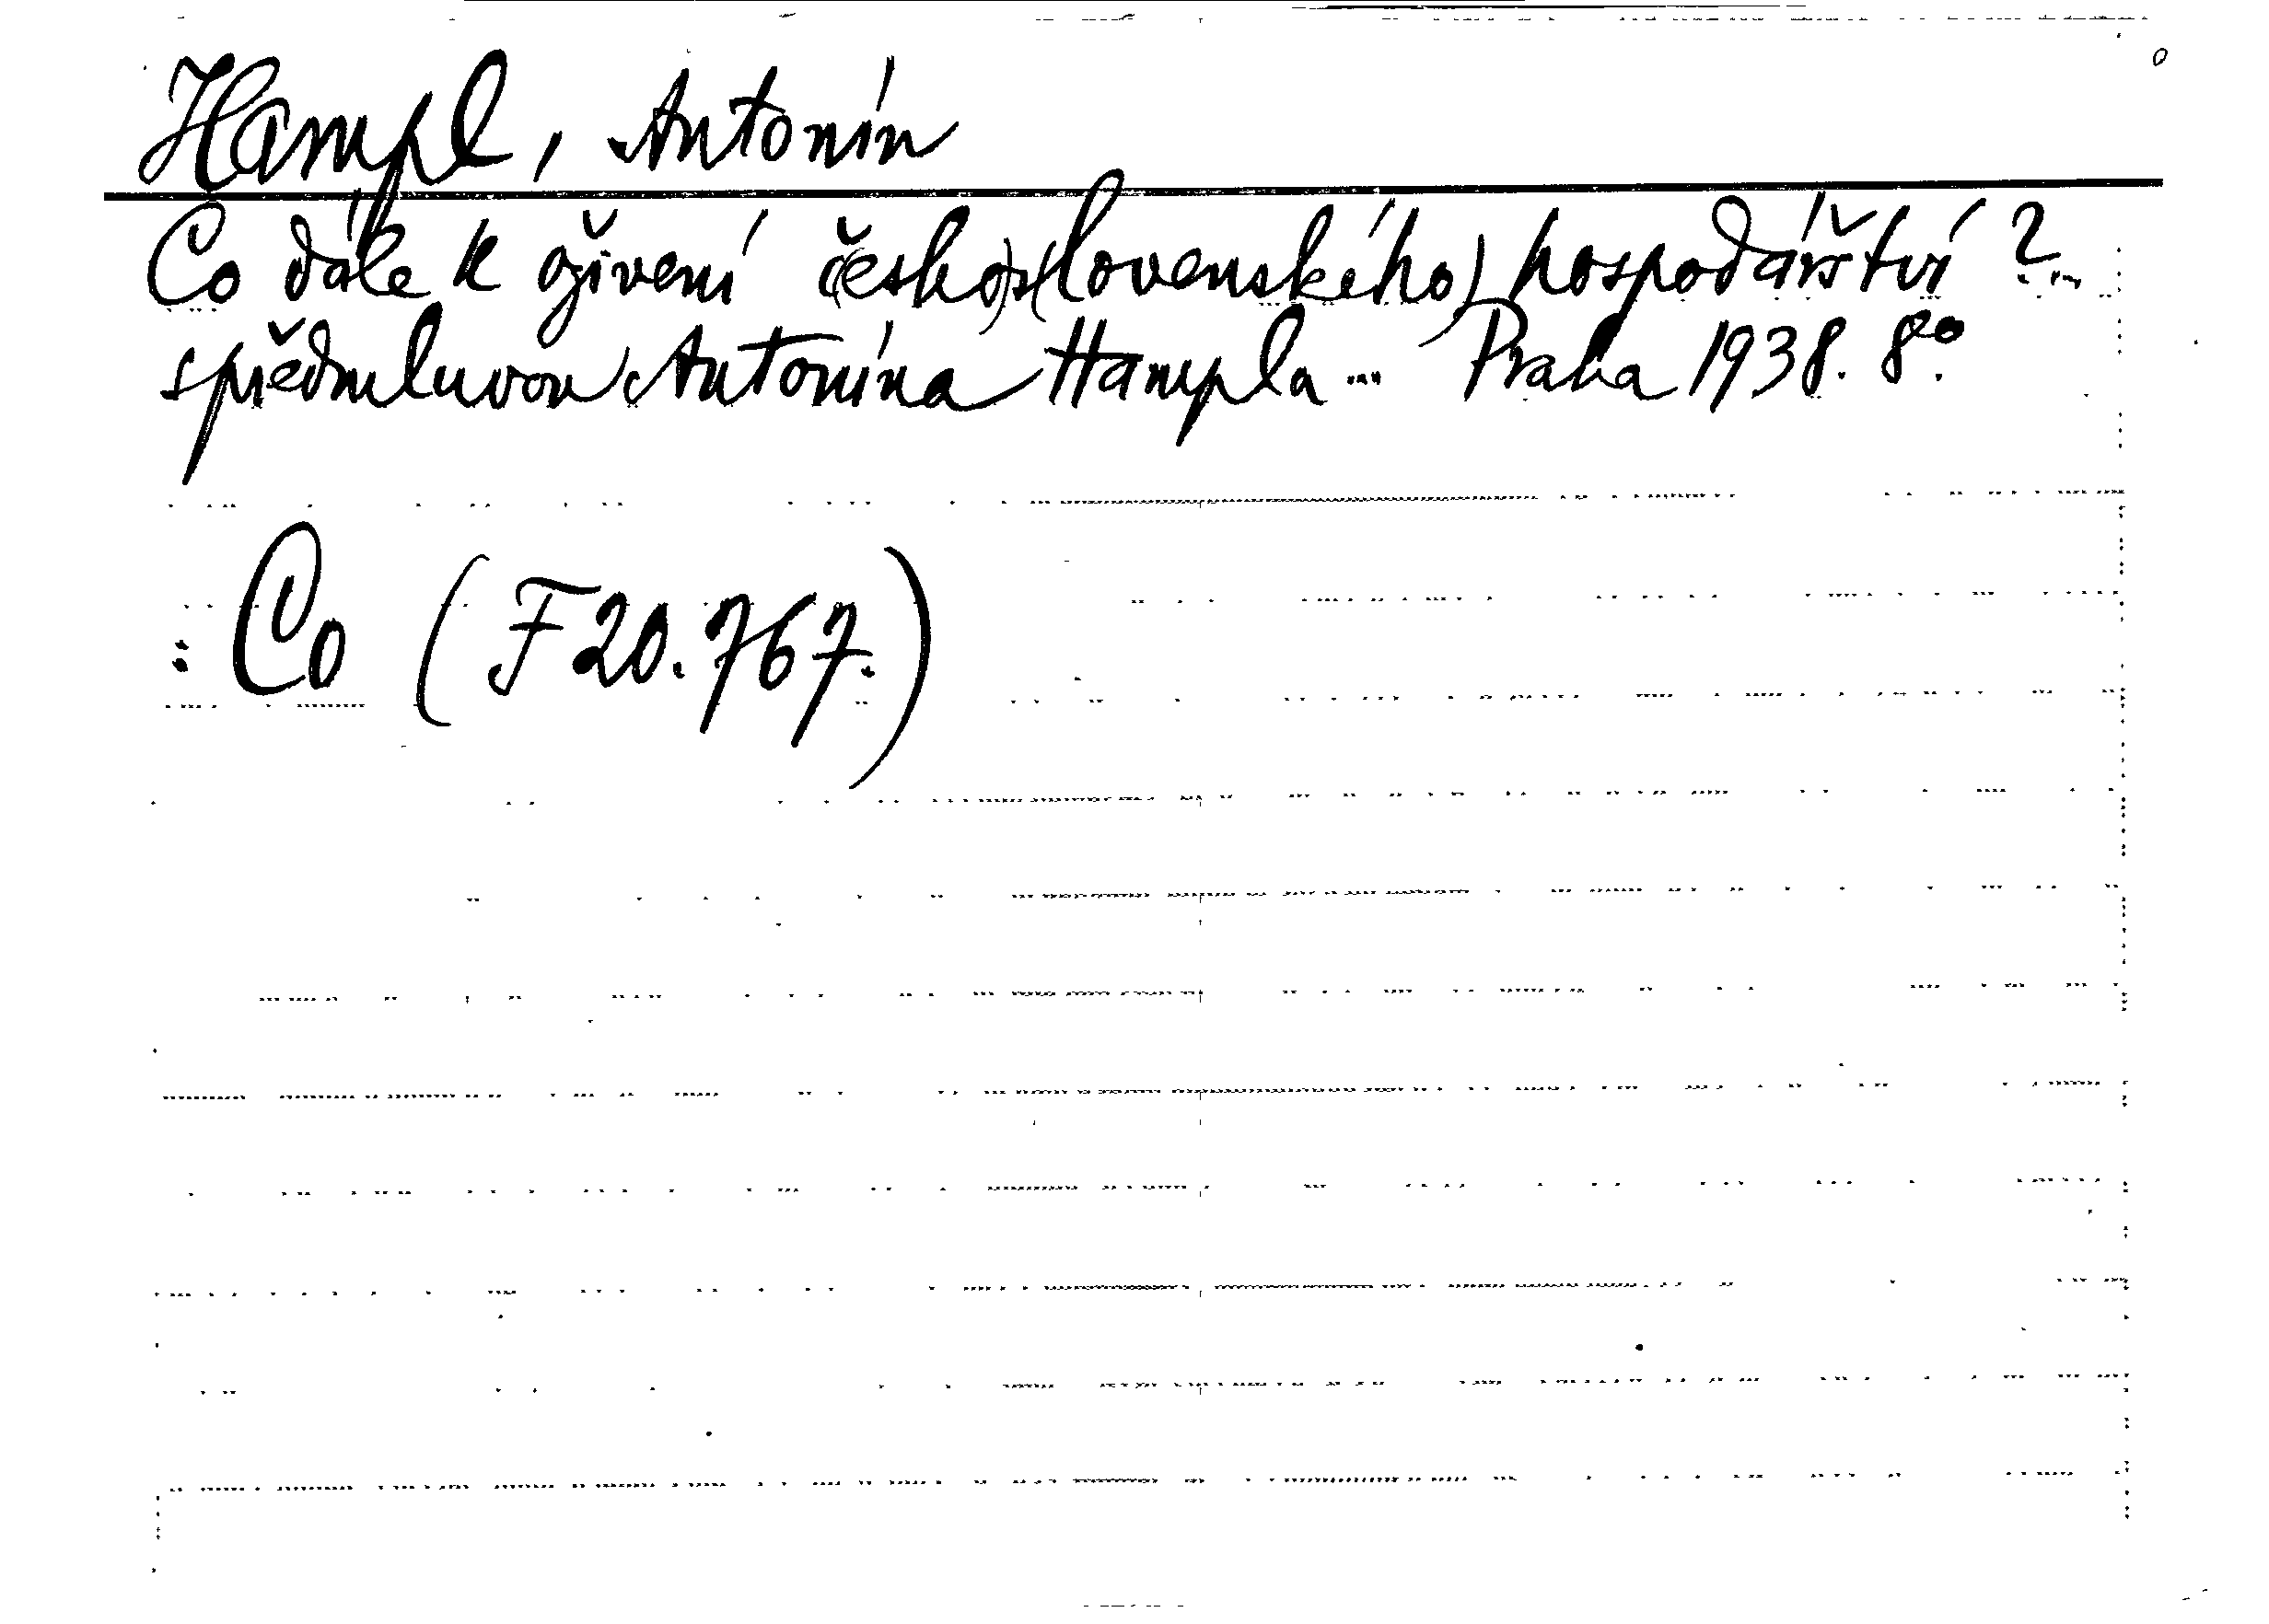 Hampl, Antonín
Co dále k oživení (česko)s(lovenského) hospodářství ?...
s předmluvou Antonína Hampla... Praha 1938. 8°.
: Co (F 20.767.)